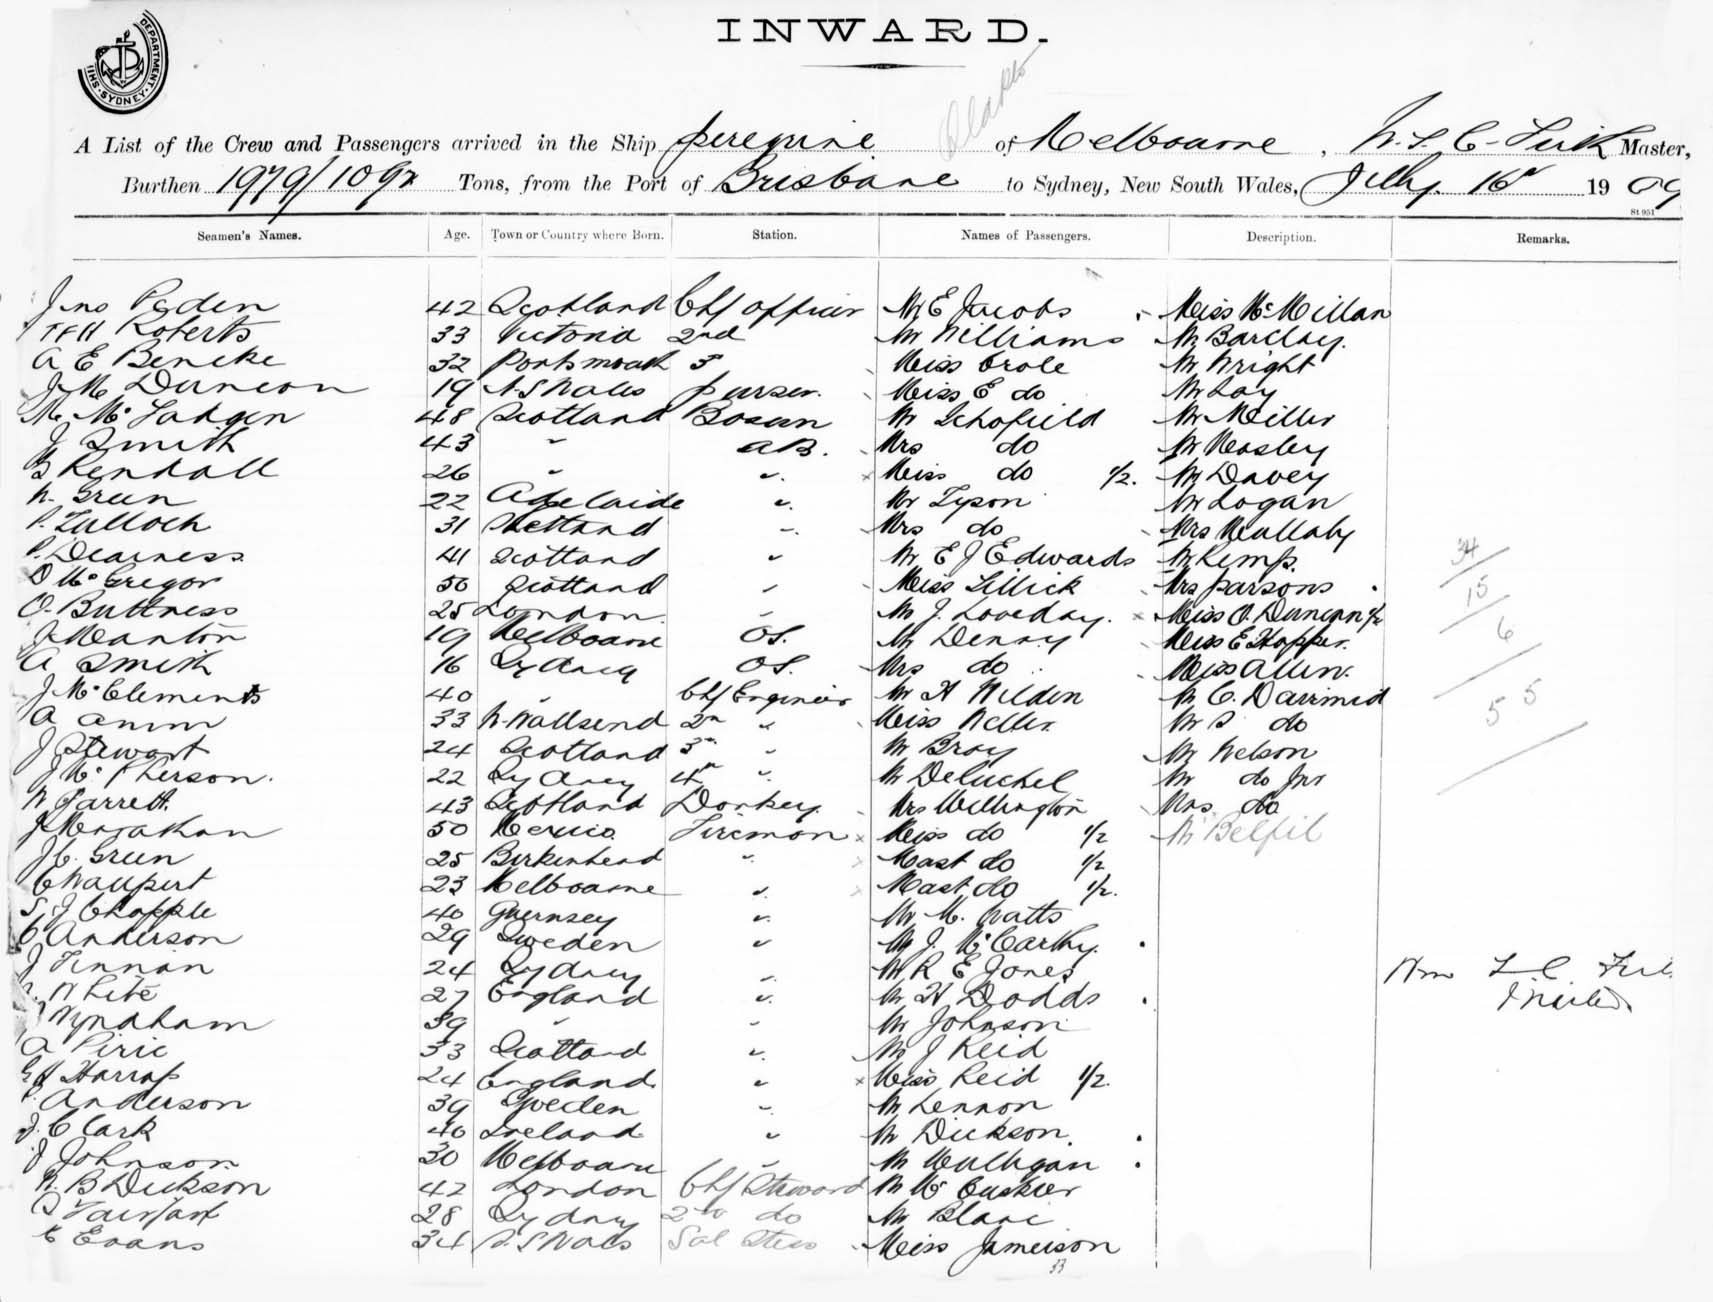 INWARD.
SHIPPING DEPARTMENT. SYDNEY.
A List of the Crew and Passengers arrived in the Ship Peregrine of Melbourne, Master,
Burthen 1979/1092 Tons, from the Port of Brisbane to Sydney, New South Wales, July 16 1909
St 951
Seamen's Names. Age. Town or Country where Born. Station. Names of Passengers. Description. Remarks.
Jno Peden 42 Scotland Chf officer Mr E Jacobs Miss McMillan
Roberts 33 Victoria 2nd Mr Williams Mr Barclay.
A E Beneke 32 Portsmouth 3 Miss Crole Mr Wright
J M Duncan 19 N.S Wales purser. Miss E do Mr Lay
M McFadgen 48 Scotland Bosun Mr Schofield Mr Miller
J Smith 43 " AB. Mrs do Mr Mosley
Kendall 26 " " Miss do 1/2. Mr Davey
W. Green 22 Adelaide " Mr Tyson Mr Logan
P. Tulloch 31 Shetland " Mrs do Mrs Mullaby
P. Dearness 41 Scotland " Mr E J Edwards Mr Kemp. 34
D McGregor 50 Scotland " Miss Lillick Mrs Parsons 15
O. Buttness 25 London " Mr J. Loveday. Miss O. Duncan 1/2
J Manton 19 Melbourne OS. Mr Denny Miss E Hopper. 6
A Smith 16 Sydney OS. Mrs do Miss Allen.
J McClements 40 " Chf Engineer Mr H Wilden Mr C. Darrimid 55
A Anim 33 N. Wallsend 2n " Miss Weller. Mr S do
J Stewart 24 Scotland 3rd " Mr Bray Mr Nelson
J McPherson. 22 Sydney 4th " Mr Deluchel Mr do Jnr
W Garrett. 43 Scotland Donkey. Mrs Wellington Mrs. do
J Monahan 50 Mexico Fireman Miss do 1/2 Mr Belfil
J C. Green 25 Birkenhead " Mast do 1/2
C Waupert 23 Melbourne " Mast do 1/2.
S. J Chapple 40 Guernsey " Mr M. Watts
C Anderson 29 Sweden " Mr J. McCarthy.
J Finnan 24 Sydney " Mr R E Jones Wm
White 27 England " Mr H Dodds Master
Wyndham 39 " " Mr Johnson
A Pirie 33 Scotland " Mr J Reid
Harrap 24 England " Miss Reid 1/2.
Anderson 39 Sweden " Mr Lennon
J. Clark 40 Ireland " Mr Dickson.
J Johnson 30 Melbourne " Mr Mulligan
W. B Dickson 42 London Chf Steward Mr McCusker
Fairfax 28 Sydney 2nd do Mr Blane
E Evans 34 N.S Wales Sal Stew Miss Jameison
33